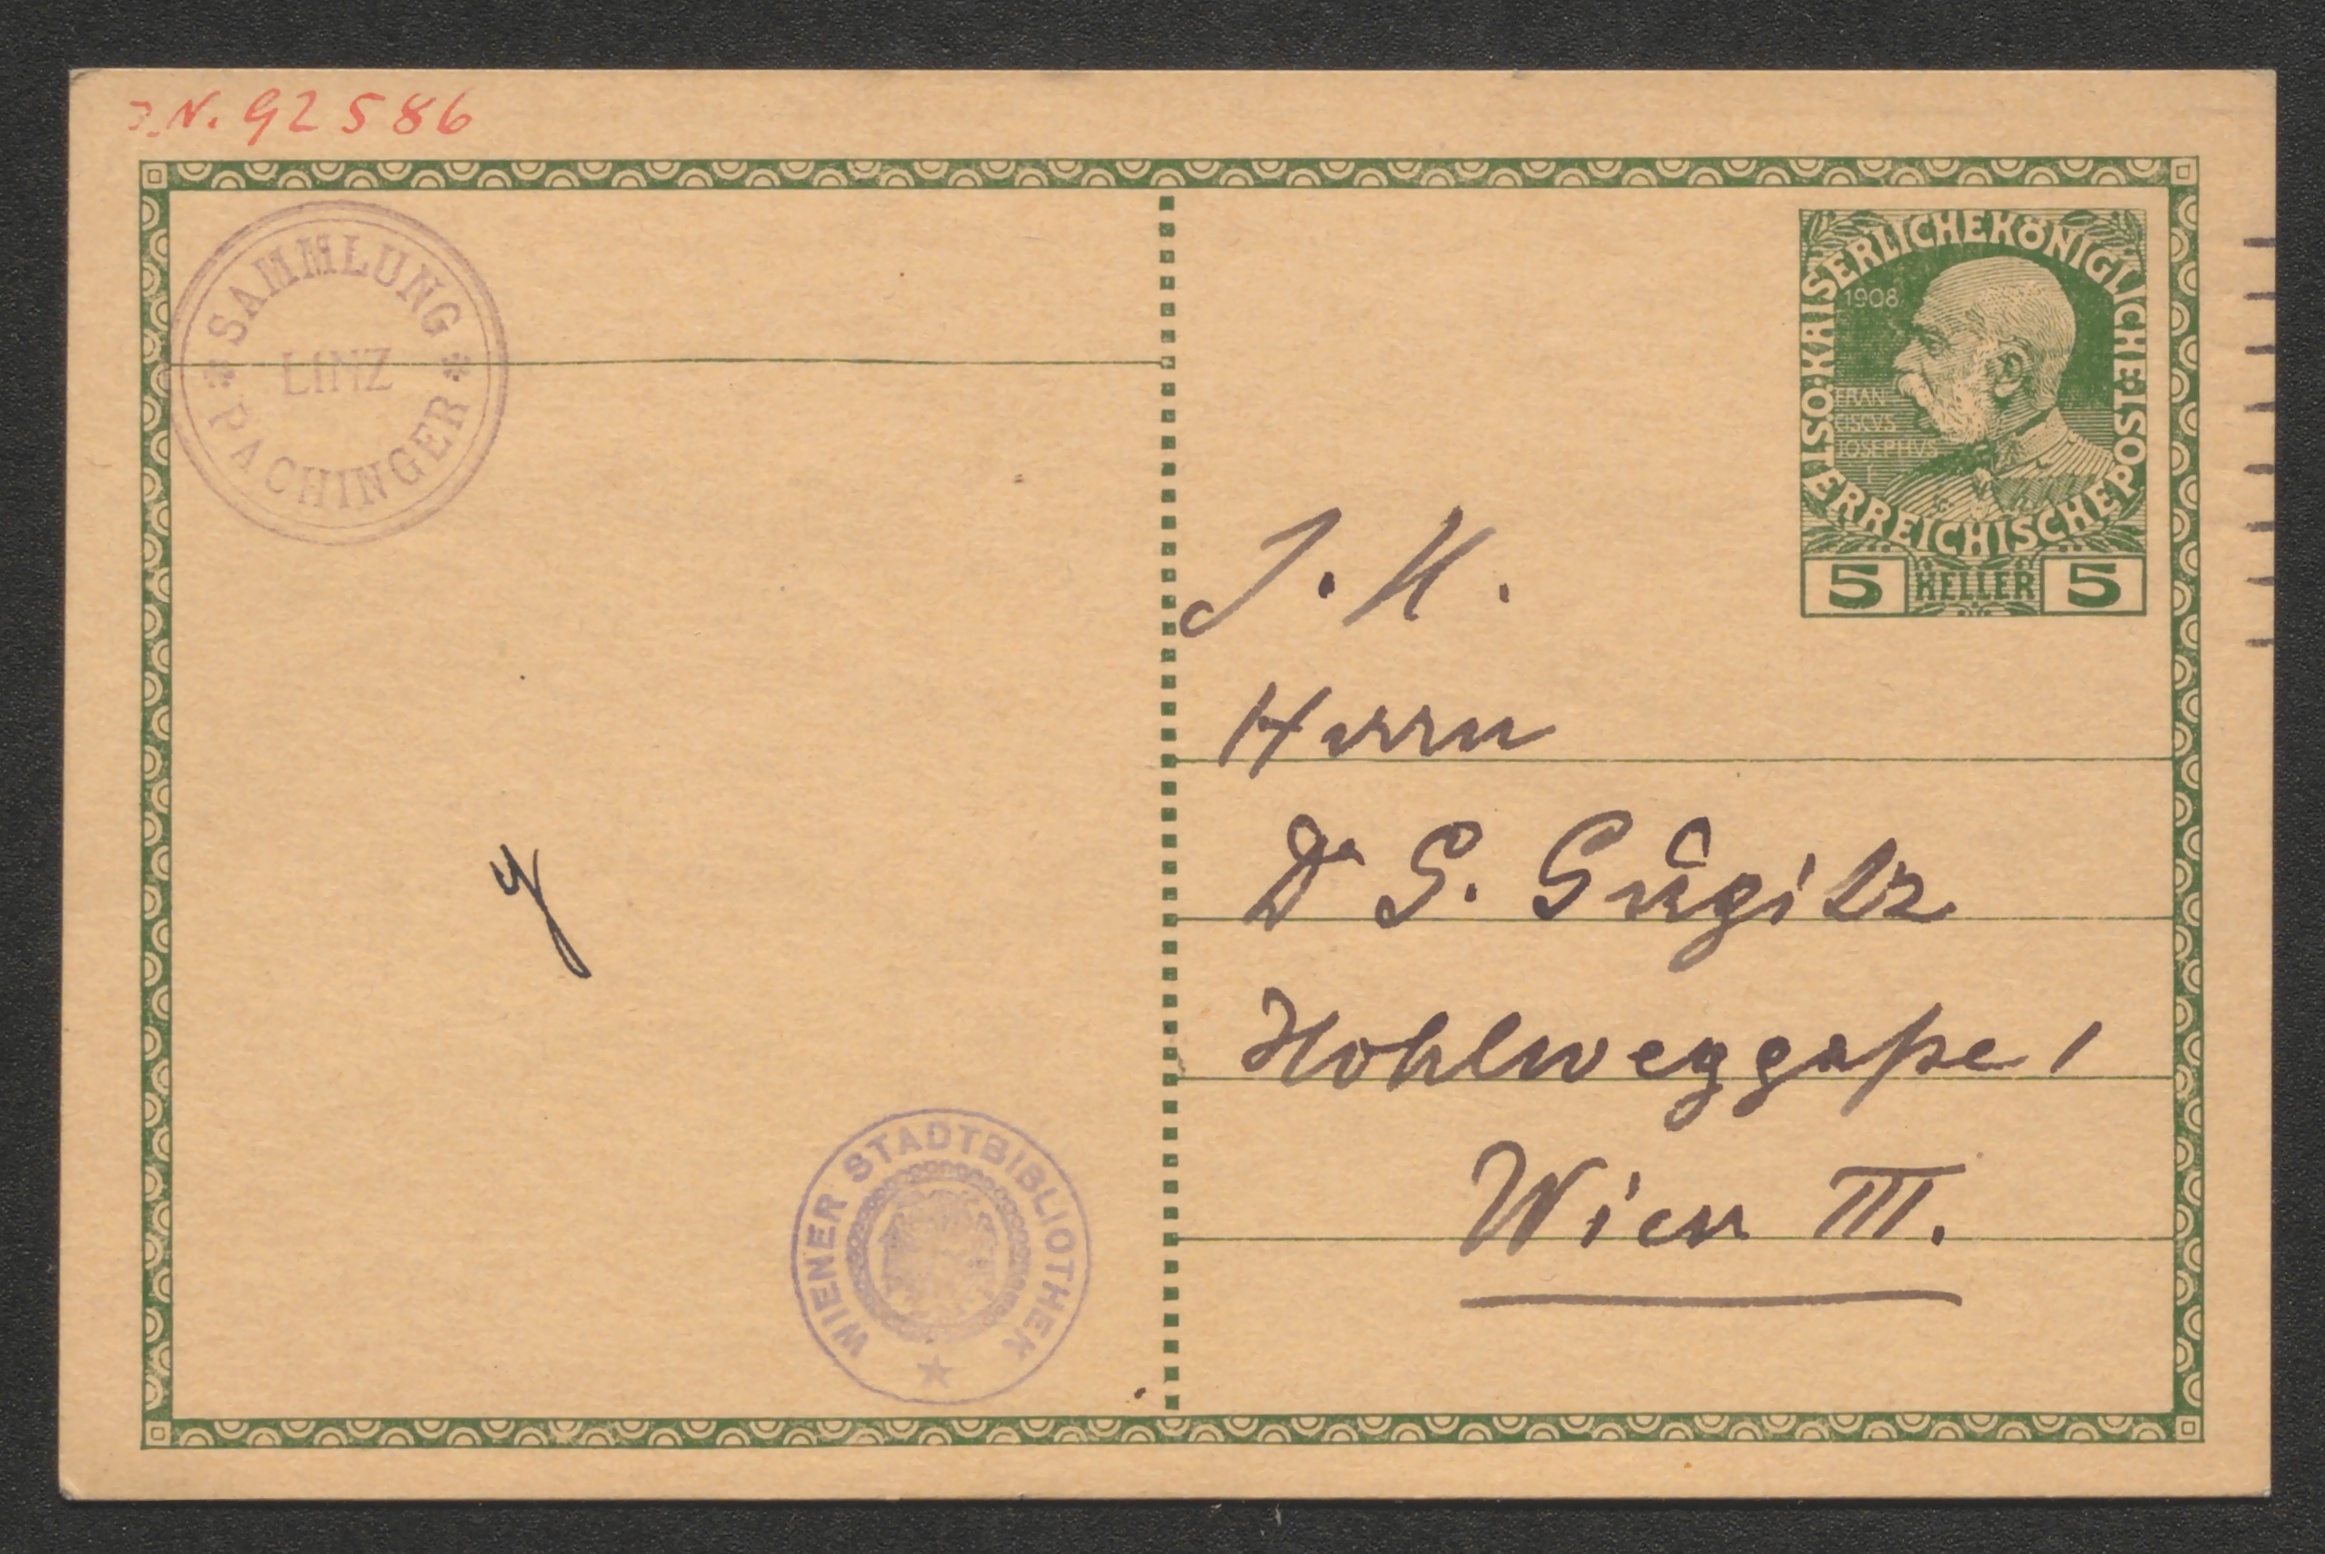 J.N. 92586
SAMMLUNG
LINZ
PACHINGER
KAISERLICHEKÖNIGLICHE
ÖSTERREICHISCHEPOST
1908
FRAN
CISCVS
IOSEPHVS
I
5 HELLER 5
J. H.
Herrn
Dr G. Gugitz
Hohlweggaße 1
Wien III.
WIENER STADTBIBLIOTHEK